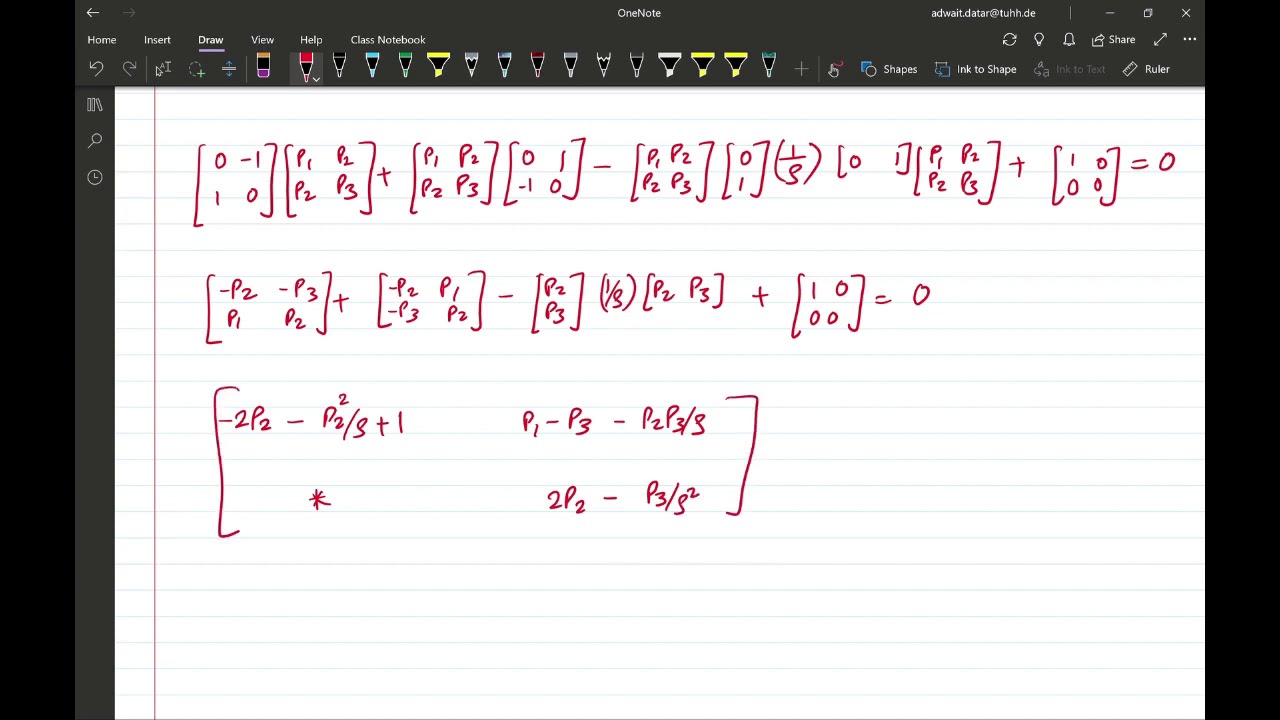 OneNote
adwait.datar@tuhh.de
Home Insert Draw View Help Class Notebook
Share
Shapes Ink to Shape Ink to Text Ruler
[0 -1; 1 0] [P₁ P₂; P₂ P₃] + [P₁ P₂; P₂ P₃] [0 1; -1 0] - [P₁ P₂; P₂ P₃] [0; 1] (1/ρ) [0 1] [P₁ P₂; P₂ P₃] + [1 0; 0 0] = 0
[-P₂ -P₃; P₁ P₂] + [-P₂ P₁; -P₃ P₂] - [P₂; P₃] (1/ρ) [P₂ P₃] + [1 0; 0 0] = 0
[-2P₂ - P₂²/ρ + 1 P₁ - P₃ - P₂P₃/ρ
* 2P₂ - P₃/ρ²]